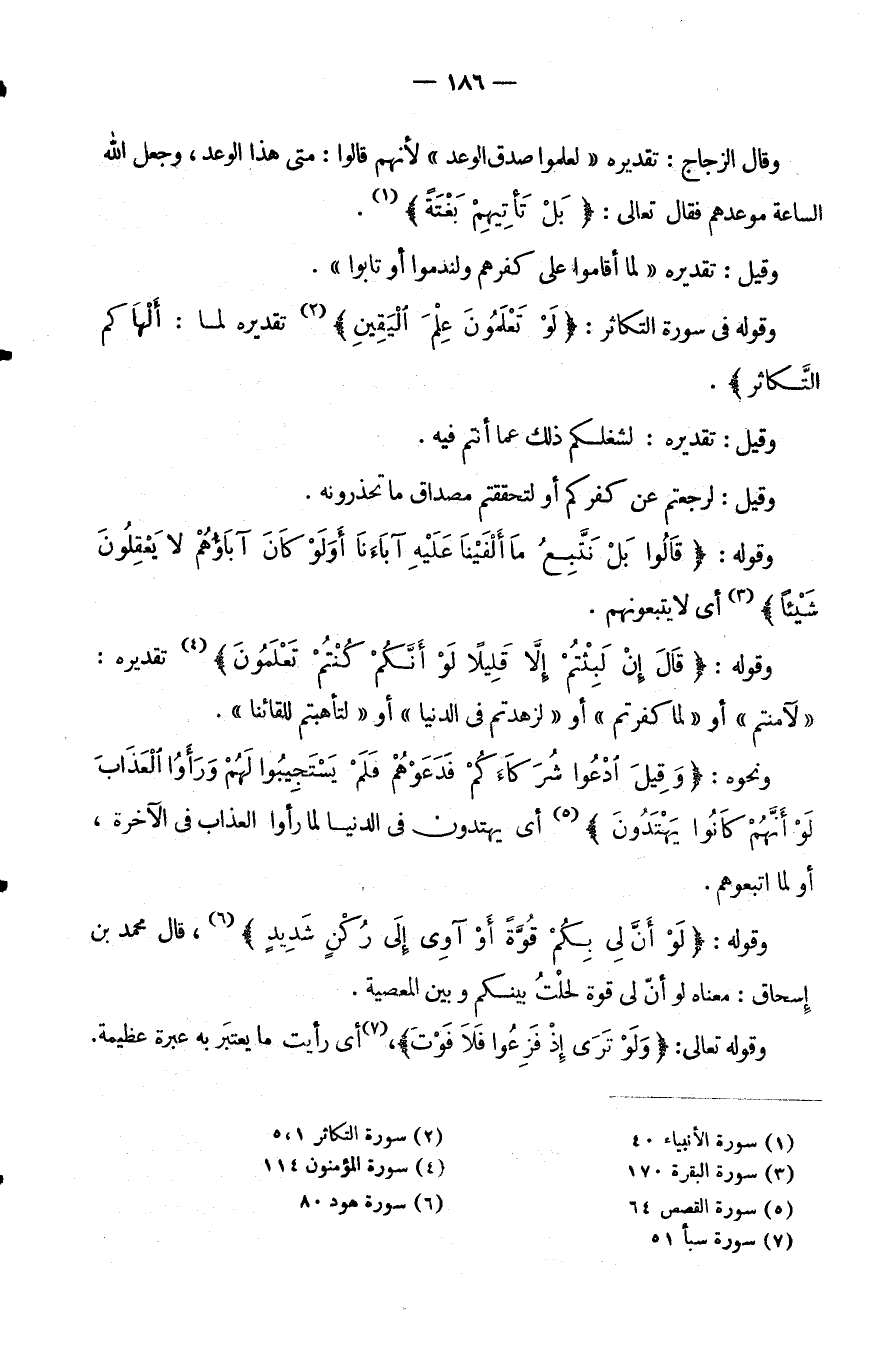 — ١٨٦ —
وقال الزجاج : تقديره « لعلموا صدق الوعد » لأنهم قالوا : متى هذا الوعد ، وجعل الله
الساعة موعدهم فقال تعالى : ﴿ بَلْ تَأْتِيهِمْ بَغْتَةً ﴾ (١) .
وقيل : تقديره « لما أقاموا على كفرهم ولندموا أو تابوا » .
وقوله فى سورة التكاثر : ﴿ لَوْ تَعْلَمُونَ عِلْمَ ٱلْيَقِينِ ﴾ (٢) تقديره لمـا : أَلْهَاكم
التَّـكاثر ﴾ .
وقيل : تقديره : لشغلـكم ذلك عما أنتم فيه .
وقيل : لرجعتم عن كفركم أو لتحققتم مصداق ما تحذرونه .
وقوله : ﴿ قَالُوا بَلْ نَتَّبِعُ مَا أَلْفَيْنَا عَلَيْهِ آبَاءَنَا أَوَلَوْ كَانَ آبَاؤُهُمْ لا يَعْقِلُونَ
شَيْئاً ﴾ (٣) أى لا يتبعونهم .
وقوله : ﴿ قَالَ إِنْ لَبِثْتُمْ إِلَّا قَلِيلًا لَوْ أَنَّـكُمْ كُنْتُمْ تَعْلَمُونَ ﴾ (٤) تقديره :
« لآمنتم » أو « لما كفرتم » أو « لزهدتم فى الدنيا » أو « لتأهبتم للقائنا » .
ونحوه : ﴿ وَقِيلَ ٱدْعُوا شُرَكَاءَكُمْ فَدَعَوْهُمْ فَلَمْ يَسْتَجِيبُوا لَهُمْ وَرَأَوُا ٱلْعَذَابَ
لَوْ أَنَّهُمْ كَانُوا يَهْتَدُونَ ﴾ (٥) أى يهتدون فى الدنيـا لما رأوا العذاب فى الآخرة ،
أو لما اتبعوهم .
وقوله : ﴿ لَوْ أَنَّ لِى بِـكُمْ قُوَّةً أَوْ آوِى إِلَى رُكْنٍ شَدِيدٍ ﴾ (٦) ، قال محمد بن
إسحاق : معناه لو أنّ لى قوة لحلْتُ بينـكم وبين المعصية .
وقوله تعالى : ﴿ وَلَوْ تَرَى إِذْ فَزِعُوا فَلَا فَوْتَ ﴾، (٧) أى رأيت ما يعتبَر به عبرة عظيمة.
(١) سورة الأنبياء ٤٠ (٢) سورة التكاثر ١، ٥
(٣) سورة البقرة ١٧٠ (٤) سورة المؤمنون ١١٤
(٥) سورة القصص ٦٤ (٦) سورة هود ٨٠
(٧) سورة سبأ ٥١